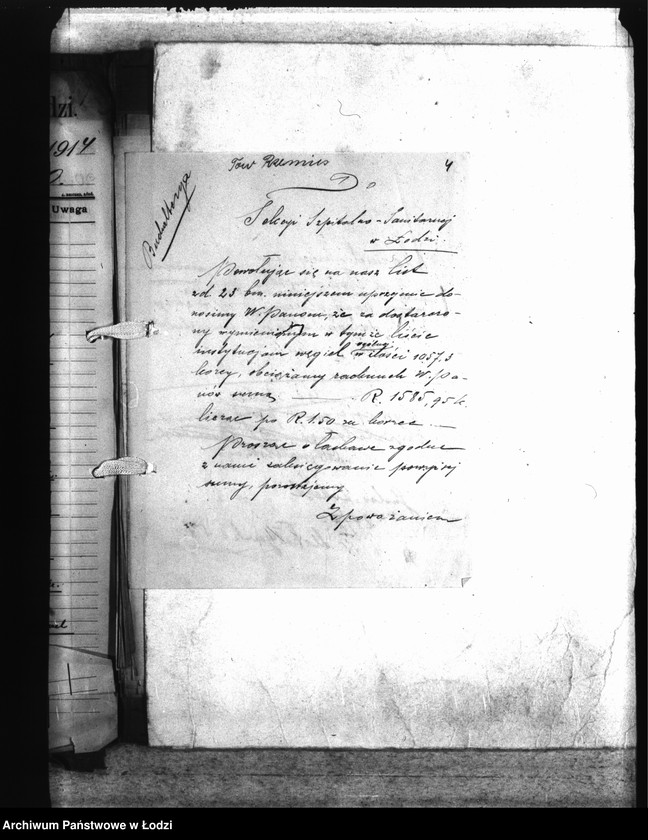 dzi.
1914
Uwaga
Tow Rzemies
4
Buchalterya
Do
Sekcyi Szpitalno-Sanitarnej
w Łodzi.
Powołując się na nasz list
zd. 25 bm. niniejszem uprzejmie do-
nosimy W. Panom, że za dostarczo-
ny wymienionym w tymże liście
instytucjom węgiel w ogólnej ilości 1057.3
korcy, obciążamy rachunek W. Pa-
nów sumą R. 1585,95 k.
licząc po R. 1.50 za korzec
Prosząc o łaskawe zgodne
z nami zaksięgowanie powyższej
sumy, pozostajemy
Z poważaniem
Archiwum Państwowe w Łodzi